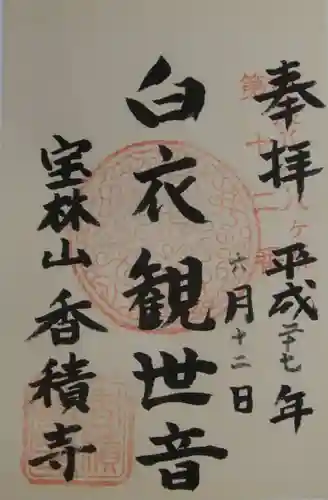 奉拝
平成二十七年
六月十二日
白衣観世音
宝林山 香積寺